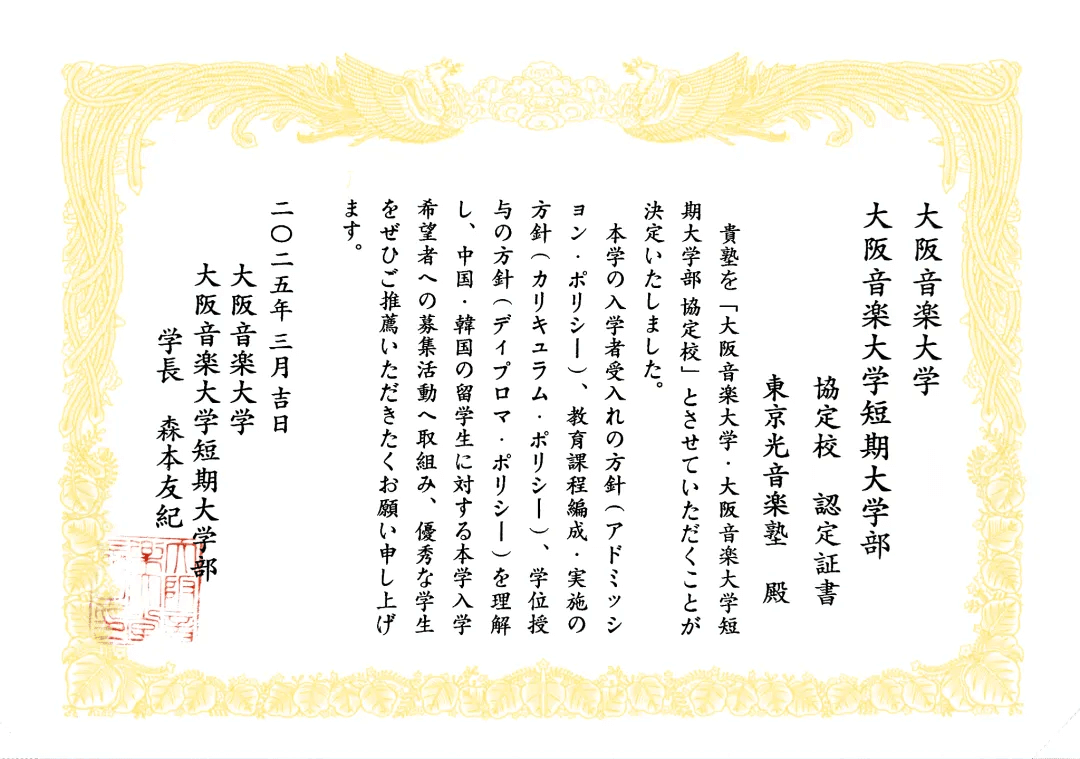 大阪音楽大学
大阪音楽大学短期大学部
協定校　認定証書
東京光音楽塾　殿
貴塾を「大阪音楽大学・大阪音楽大学短
期大学部 協定校」とさせていただくことが
決定いたしました。
本学の入学者受入れの方針（アドミッシ
ョン・ポリシー）、教育課程編成・実施の
方針（カリキュラム・ポリシー）、学位授
与の方針（ディプロマ・ポリシー）を理解
し、中国・韓国の留学生に対する本学入学
希望者への募集活動へ取組み、優秀な学生
をぜひご推薦いただきたくお願い申し上げ
ます。
二〇二五年 三月 吉日
大阪音楽大学
大阪音楽大学短期大学部
学長　森本友紀